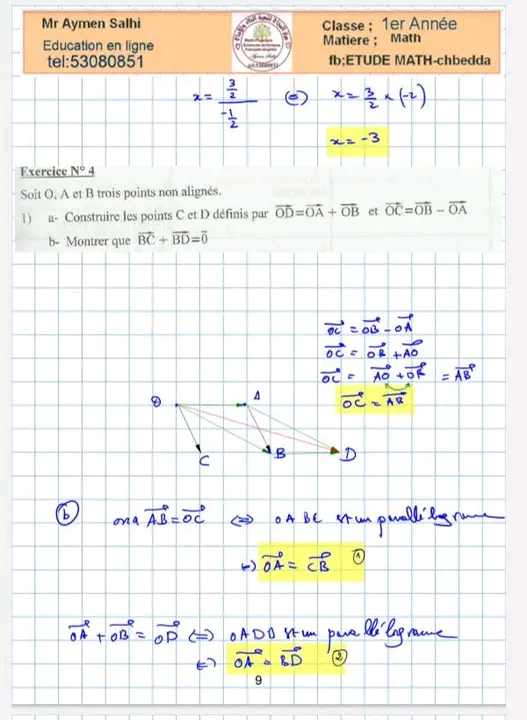 Mr Aymen Salhi
Education en ligne
tel:53080851
Classe ; 1er Année
Matiere ; Math
fb;ETUDE MATH-chbedda
x = 3/2 / -1/2 (=) x = 3/2 × (-2)
x = -3
Exercice N° 4
Soit O, A et B trois points non alignés.
1) a- Construire les points C et D définis par OD⃗=OA⃗ + OB⃗ et OC⃗=OB⃗ − OA⃗
b- Montrer que BC⃗ + BD⃗=0⃗
OC⃗ = OB⃗ - OA⃗
OC⃗ = OB⃗ + AO⃗
OC⃗ = AO⃗ + OB⃗ = AB⃗
OC⃗ = AB⃗
O A
C B D
b ona AB⃗ = OC⃗ (=) OABC est un parallélogramme
(=) OA⃗ = CB⃗ 1
OA⃗ + OB⃗ = OD⃗ (=) OADB est un parallélogramme
(=) OA⃗ = BD⃗ 2
9